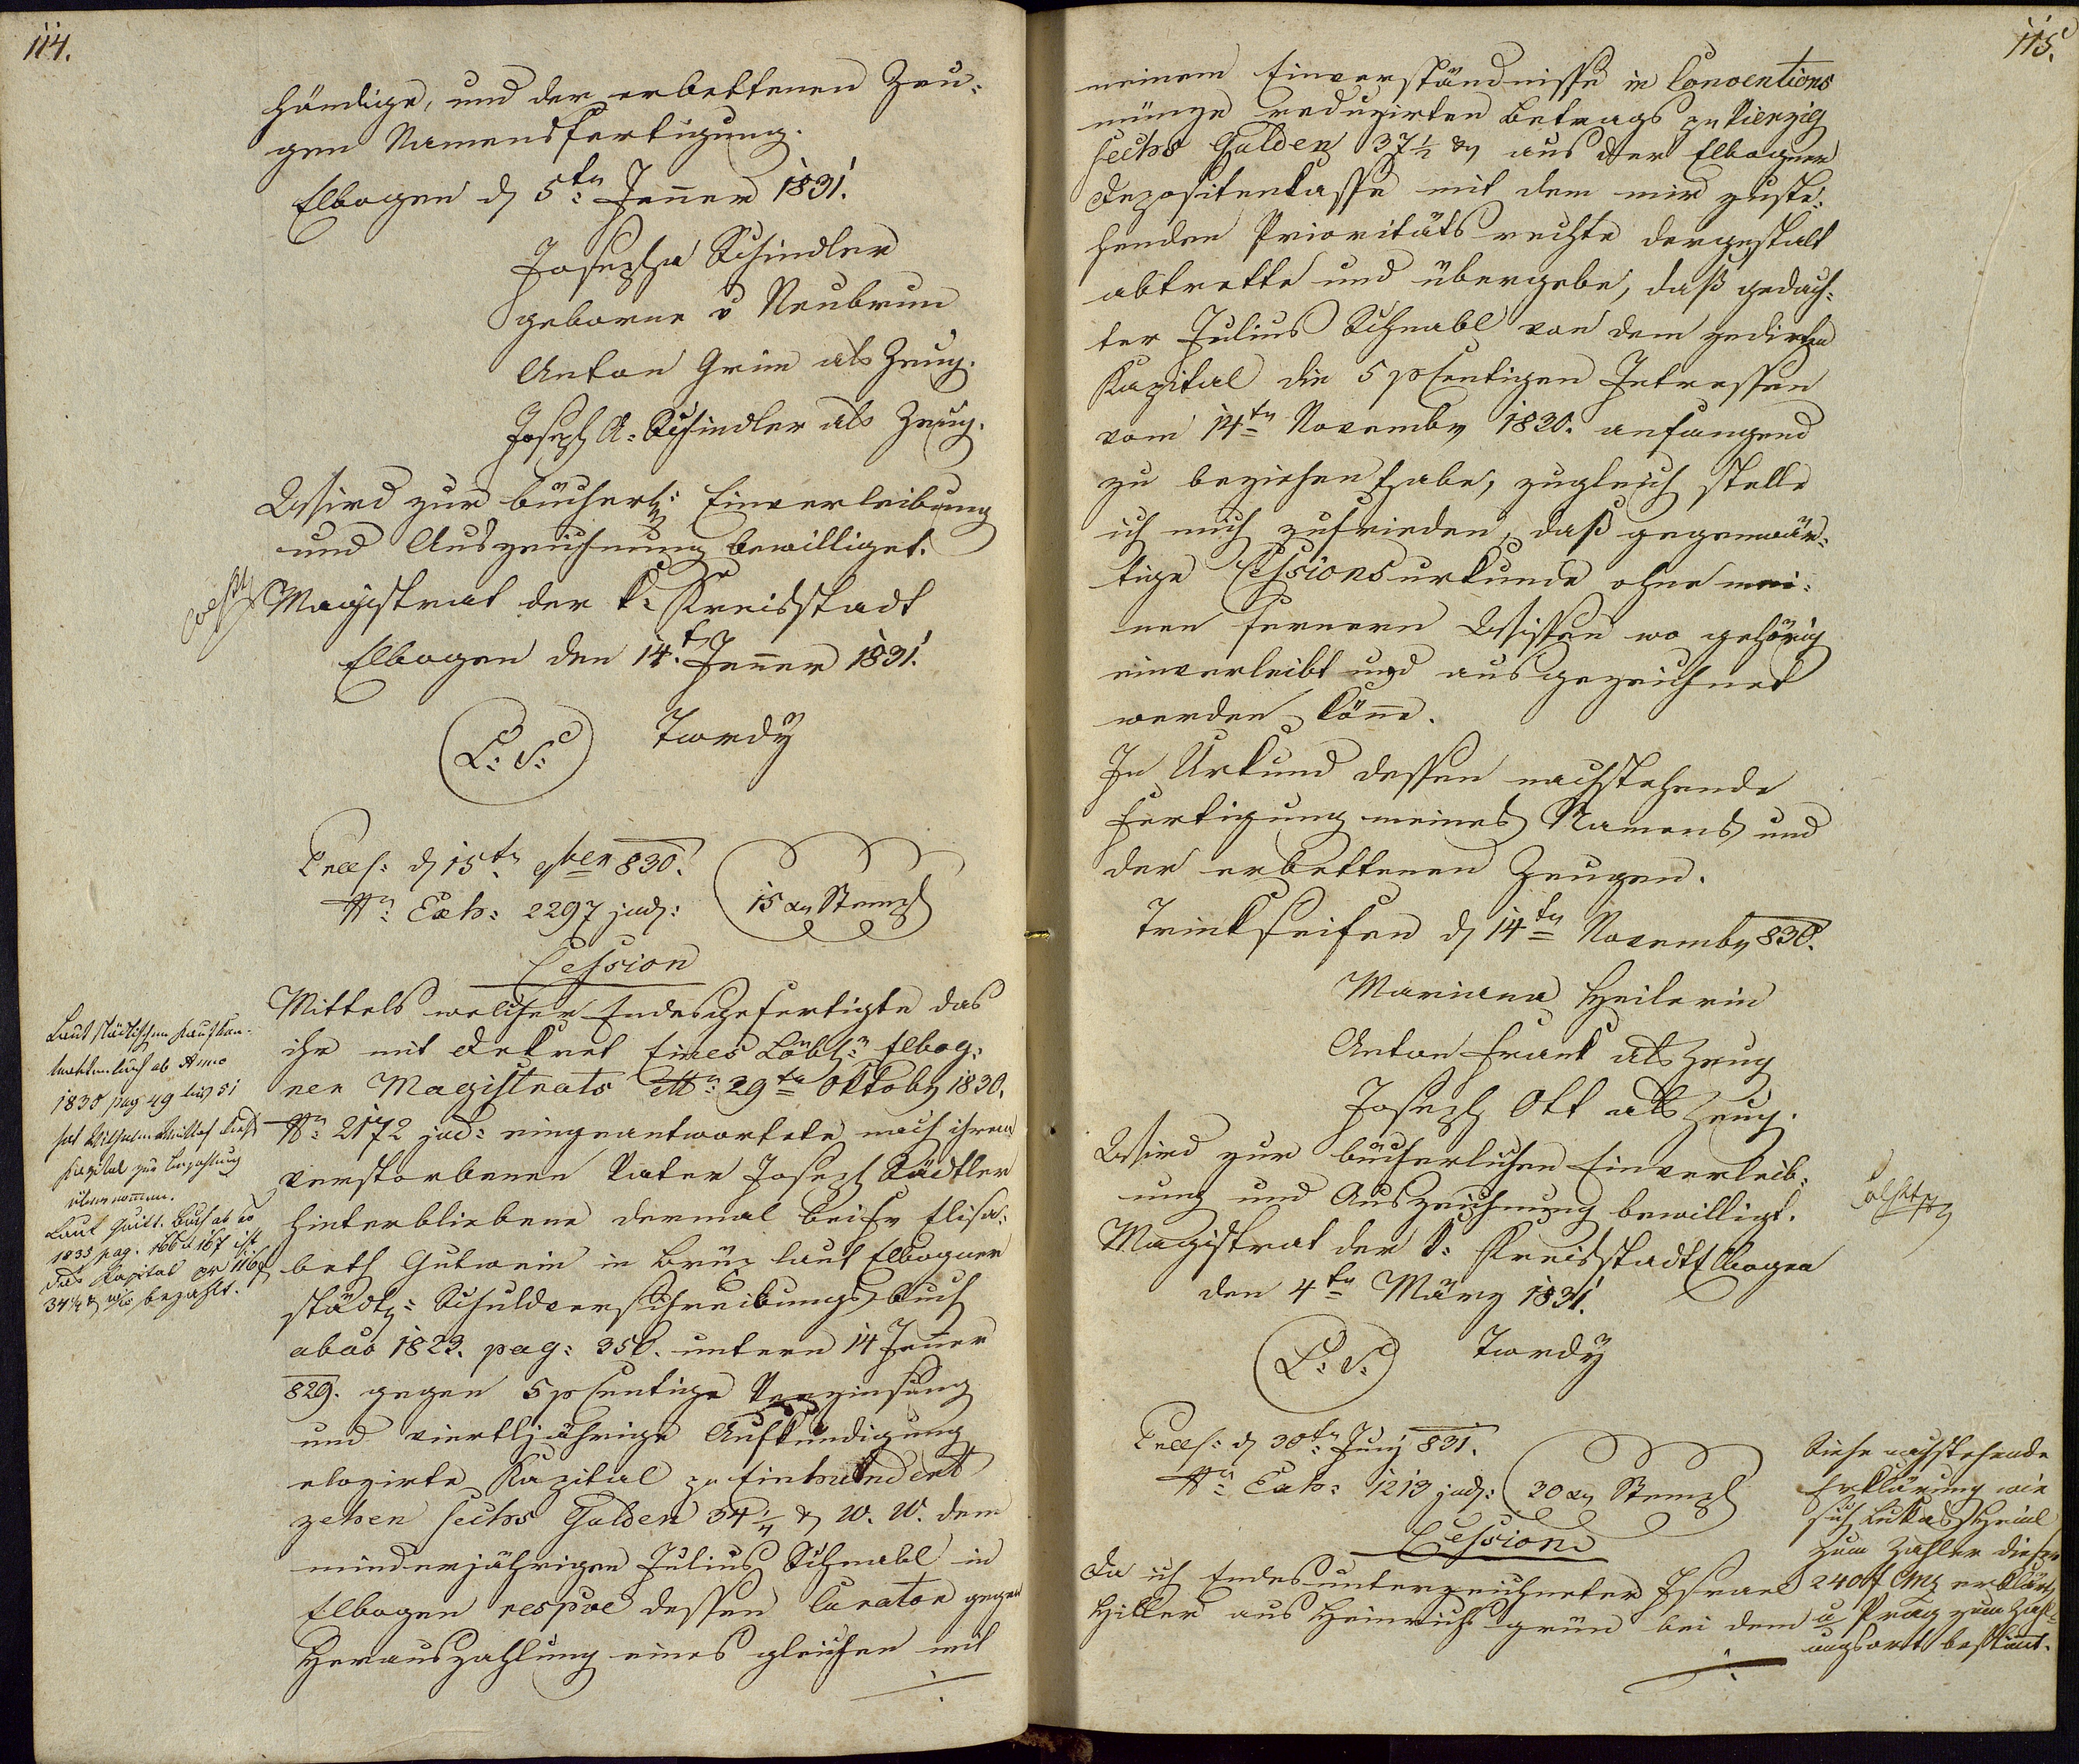 114.
händige, und der erbettenen Zeu-
gen Namensfertigung.
Elbogen d 5ten Jenner 1831.
Josepha Schindler
geborne v Neubrun
Anton Grim als Zeug.
Joseph A. Schindler als Zeug.
Wird zur bücherl: Einverleibung
und Auszeichnung bewilliget.
Magistrat der k: Kreisstadt
Elbogen den 14.t Jenner 1831.
L. S. Twrdÿ
Præs: d 15tn 9ber 830.
Nr: Exh: 2297 jud: 15 xr Stempl
Cession
Mittels welcher Endesgefertigte das
ihr mit Dekret Eines Löbl: Elbog-
ner Magistrats dto 29tn Oktober 1830.
Nr: 2172 jud: eingeantwortete nach ihrem
verstorbenen Vater Joseph Städtler
hinterbliebene dermal bei Fr Elisa-
beth Gutwein in Brüx laut Elbogner
städt: Schuldverschreibungsbuch
ab ao 1823. pag: 350. unterm 14 Jenner
829. gegen 5 pCentige Verzinsung
und vierteljährige Aufkündigung
elozirte Kapital zu Einhundert
zehen sechs Gulden 34 1/4 xr W. W. dem
minderjährigen Julius Schnabl in
Elbogen respve dessen Curator gegen
Herauszahlung eines gleichen mit
Laut städtischen Kaufkon-
traktenbuch ab Anno
1830 pag 49 bis 51
hat Wilhelm dieß
Kapital zur Bezahlung
übernommen.
Laut Quitt. Buch ab ao
1835 pag. 166 & 167 ist
das Kapital pr 116 f
34 1/4 xr bezahlt.
115.
meinem Einverständnisse in Conventions
münze reduzirten Betrags zu Vierzig
sechs Gulden 37 1/2 xr aus der Elbogner
Depositenkasse mit dem mir zuste-
henden Prioritätsrechte dergestalt
abtrette und übergebe, daß gedach-
ter Julius Schnabl von dem zedirten
Kapital die 5 pCentigen Intressen
vom 14tn November 1830. anfangend
zu beziehen habe, zugleich stelle
ich mich zufrieden, daß gegenwär-
tige Cessionsurkunde ohne mei-
nen fernern Wissen wo gehörig
einverleibt und ausgezeichnet
werden könne.
In Urkund dessen nachstehende
Fertigung meines Namens und
der erbettenen Zeugen.
Trinkseifen d 14tn November 830.
Mariana Heilerin
Anton Frank als Zeug
Joseph Ott als Zeug.
Wird zur bücherlichen Einverleib-
ung und Auszeichnung bewilligt.
Magistrat der k: Kreisstadt Elbogen
den 4tn März 1831.
L. S. Twrdÿ
Præs: d 30tn Juny 831.
Nr: Exh: 1213 jud: 30 xr Stempl
Cession
Da ich Endesunterzeichneter Israel
Hiller aus Heinrichsgrün bei dem
Siehe nachstehende
Erklärung wie
sich Lukas Heinl
zum Zahler dieser
240 f CMz erklärt,
u Prag zum Zahl-
ungsort bestimmt.